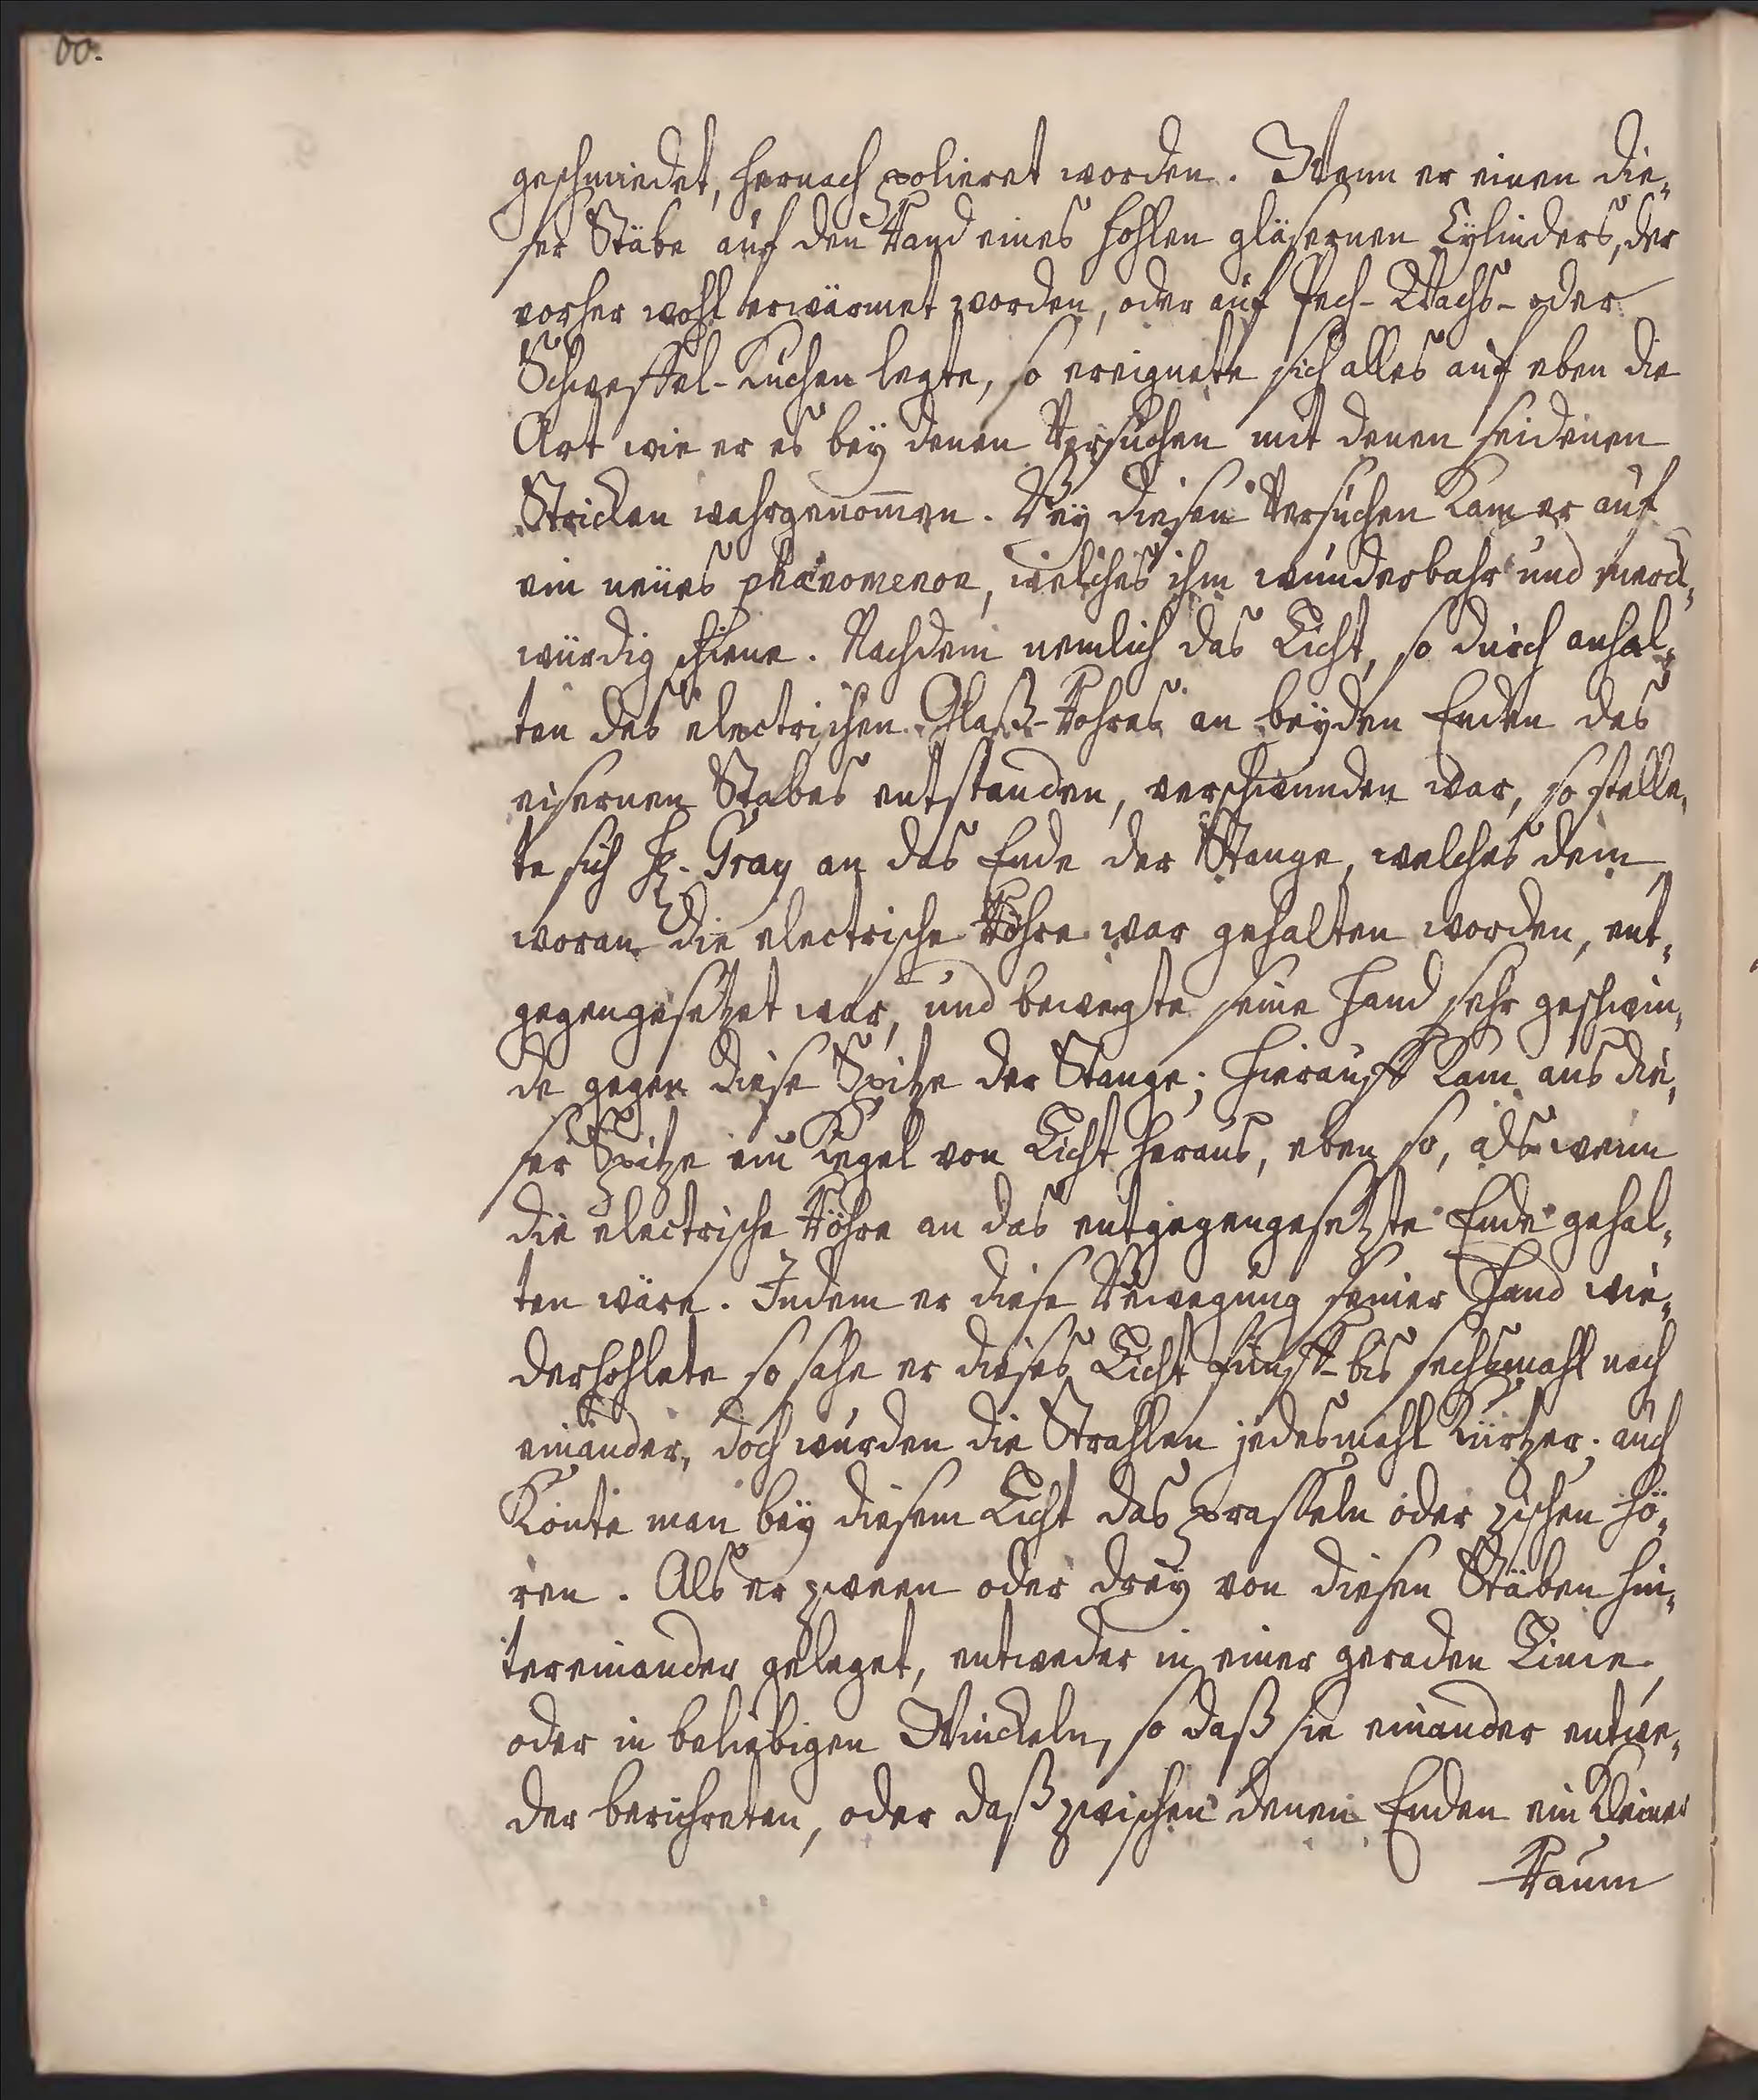 00.
geschmiedet, hernach polieret worden. Wenn er einen die¬
ser Stäbe auf den Rand eines hohlen gläsernen Cylinders, der
vorher wohl erwärmet worden, oder auf Pech- Wachs- oder
Schweffel-Kuchen legte, so ereignete sich alles auf eben die
Art wie er es bey denen Versuchen mit denen seidenen
Stricken wahrgenom̄en. Bey diesen Versuchen kam er auf
ein neues phænomenon, welches ihm wunderbahr und merck¬
würdig schiene. Nachdem nemlich das Licht, so durch anhal¬
ten des electrischen Glaß-Rohres an beyden Enden des
eisernen Stabes entstanden, verschwunden war, so stelle¬
te sich H. Gray an das Ende der Stange, welches dem
woran die electrische Röhre war gehalten worden, ent¬
gegengesetzet war, und bewegte seine Hand sehr geschwin¬
de gegen diese Spitze der Stange; hierauff kam aus die¬
ser Spitze ein Kegel von Licht heraus, eben so, als wenn
die electrische Röhre an das entgegengesetzte Ende gehal¬
ten wäre. Indem er diese Bewegung seiner Hand wie¬
derhohlete so sahe er dieses Licht fünff- bis sechsmahl nach
einander, doch wurden die Strahlen jedesmahl kürtzer; auch
konte man bey diesem Licht das prasseln oder zischen hö¬
ren. Als er zween oder drey von diesen Stäben hin¬
tereinander geleget, entweder in einer geraden Linie,
oder in beliebigen Winckeln, so daß sie einander entwe¬
der berühreten, oder daß zwischen denen Enden ein kleiner
Raum